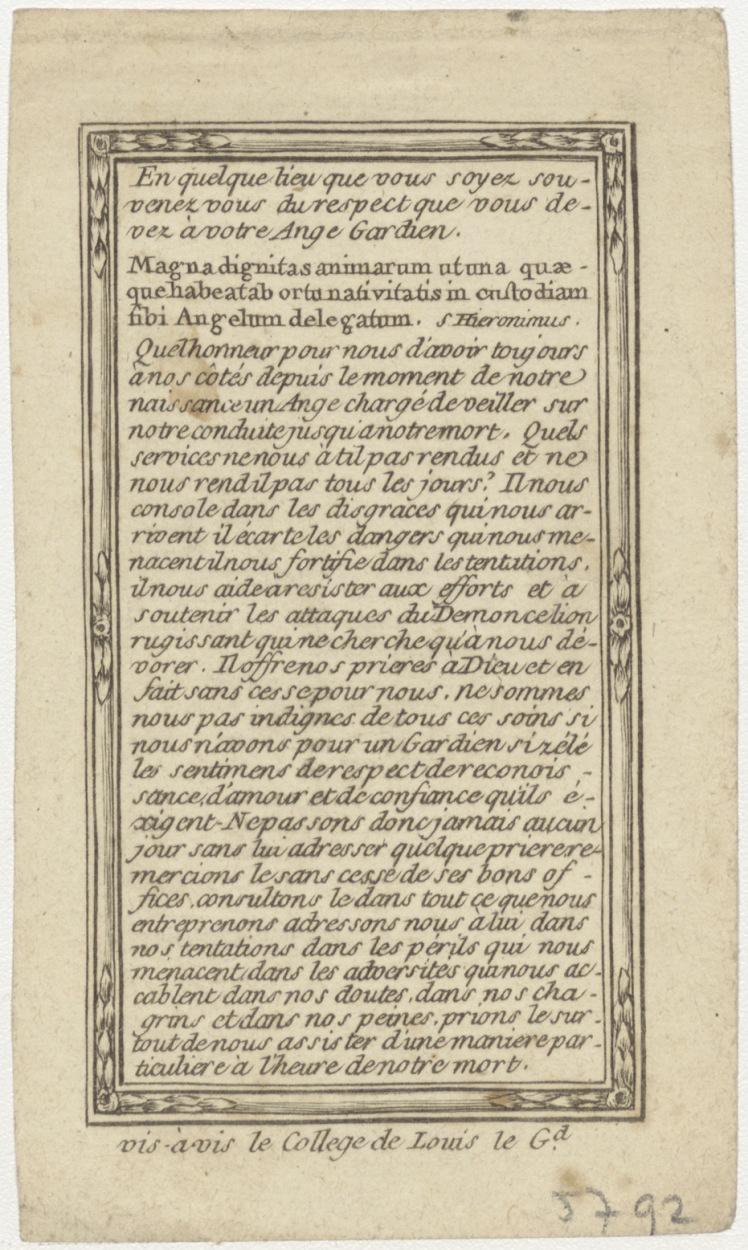 En quelque lieu que vous soyez sou-
venez vous du respect que vous de-
vez à votre Ange Gardien.
Magna dignitas animarum ut una quæ-
que habeat ab ortu nativitatis in custodiam
sibi Angelum delegatum. S Hieronimus.
Quel honneur pour nous d'avoir toujours
à nos côtés depuis le moment de notre
naissance un Ange chargé de veiller sur
notre conduite jusqu'a notre mort. Quels
services ne nous à til pas rendus et ne
nous rend il pas tous les jours? Il nous
console dans les disgraces qui nous ar-
rivent il écarte les dangers qui nous me-
nacent il nous fortifie dans les tentations,
il nous aide à resister aux efforts et à
soutenir les attaques du Demon ce lion
rugissant qui ne cherche qu'à nous dé-
vorer. Il offre nos prieres à Dieu et en
fait sans cesse pour nous, ne sommes
nous pas indignes de tous ces soins si
nous n'avons pour un Gardien si zélé
les sentimens de respect de reconois-
sance, d'amour et de confiance qu'ils é-
xigent. Ne passons donc jamais aucun
jour sans lui adresser quelque priere re-
mercions le sans cesse de ses bons of-
fices, consultons le dans tout ce que nous
entreprenons adressons nous à lui dans
nos tentations dans les périls qui nous
menacent, dans les adversités qui nous ac-
cablent dans nos doutes, dans nos cha-
grins et dans nos peines, prions le sur-
tout de nous assister d'une maniere par-
ticuliere à l'heure de notre mort.
vis-à-vis le College de Louis le G.d
5792